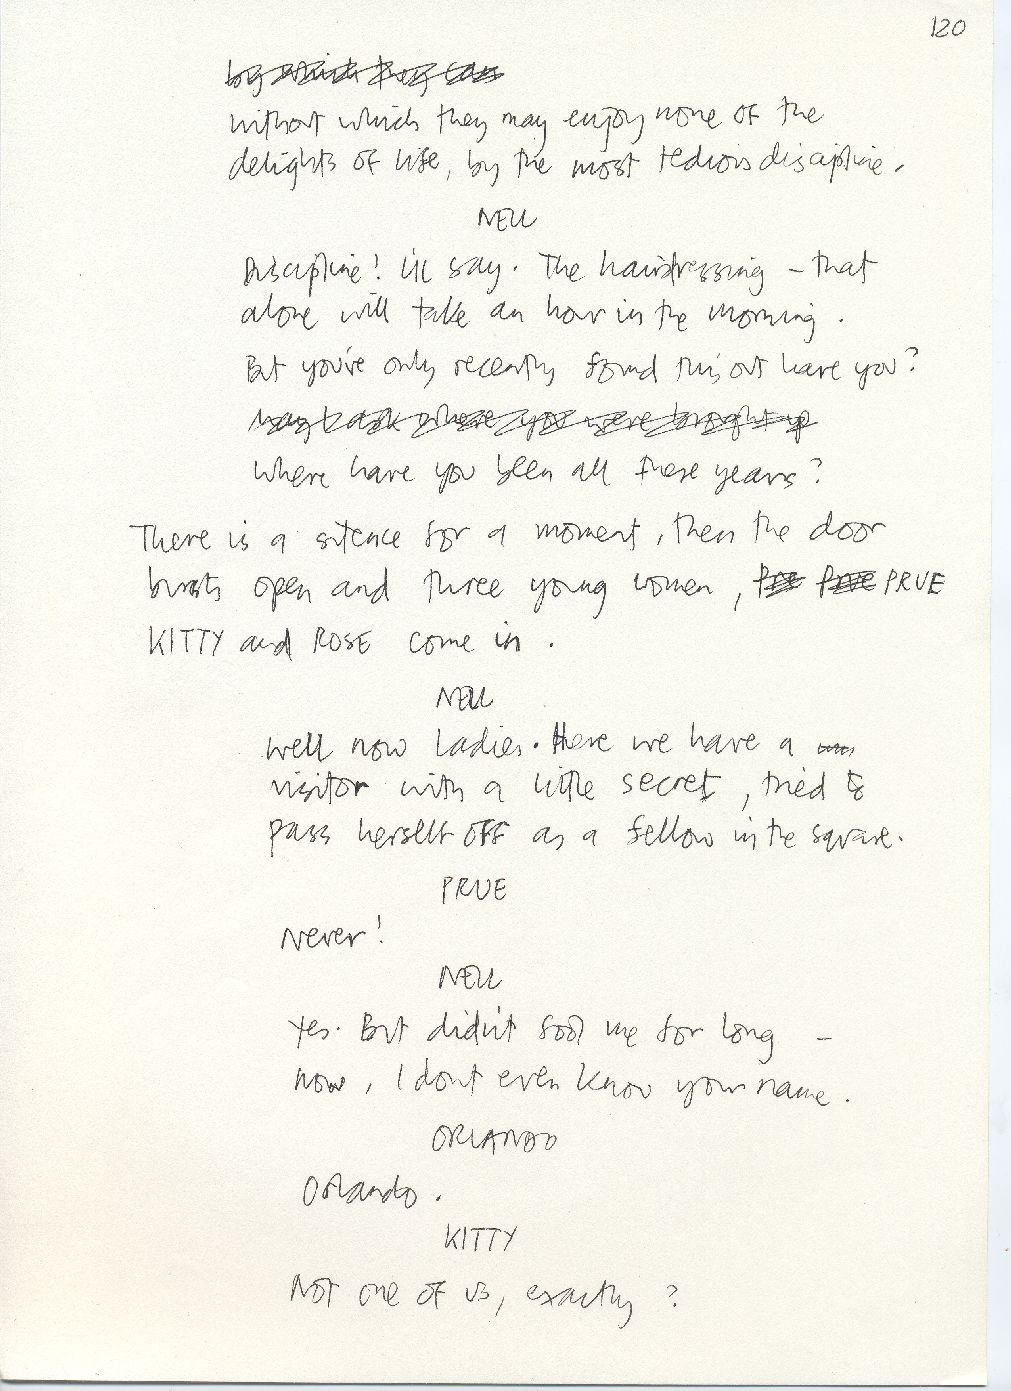 120
by which they can
without which they may enjoy none of the
delights of life, by the most tedious discipline.
NELL
Discipline! I'll say. The hairdressing – that
alone will take an hour in the morning.
But you've only recently found this out have you?
may I ask where you were brought up
where have you been all these years?
There is a silence for a moment, then the door
bursts open and three young women, PRUE
KITTY and ROSE come in.
NELL
Well now ladies. Here we have a
visitor with a little secret, tried to
pass herself off as a fellow in the square.
PRUE
Never!
NELL
Yes. But didn't fool me for long –
now, I dont even know your name.
ORLANDO
Orlando.
KITTY
Not one of us, exactly?